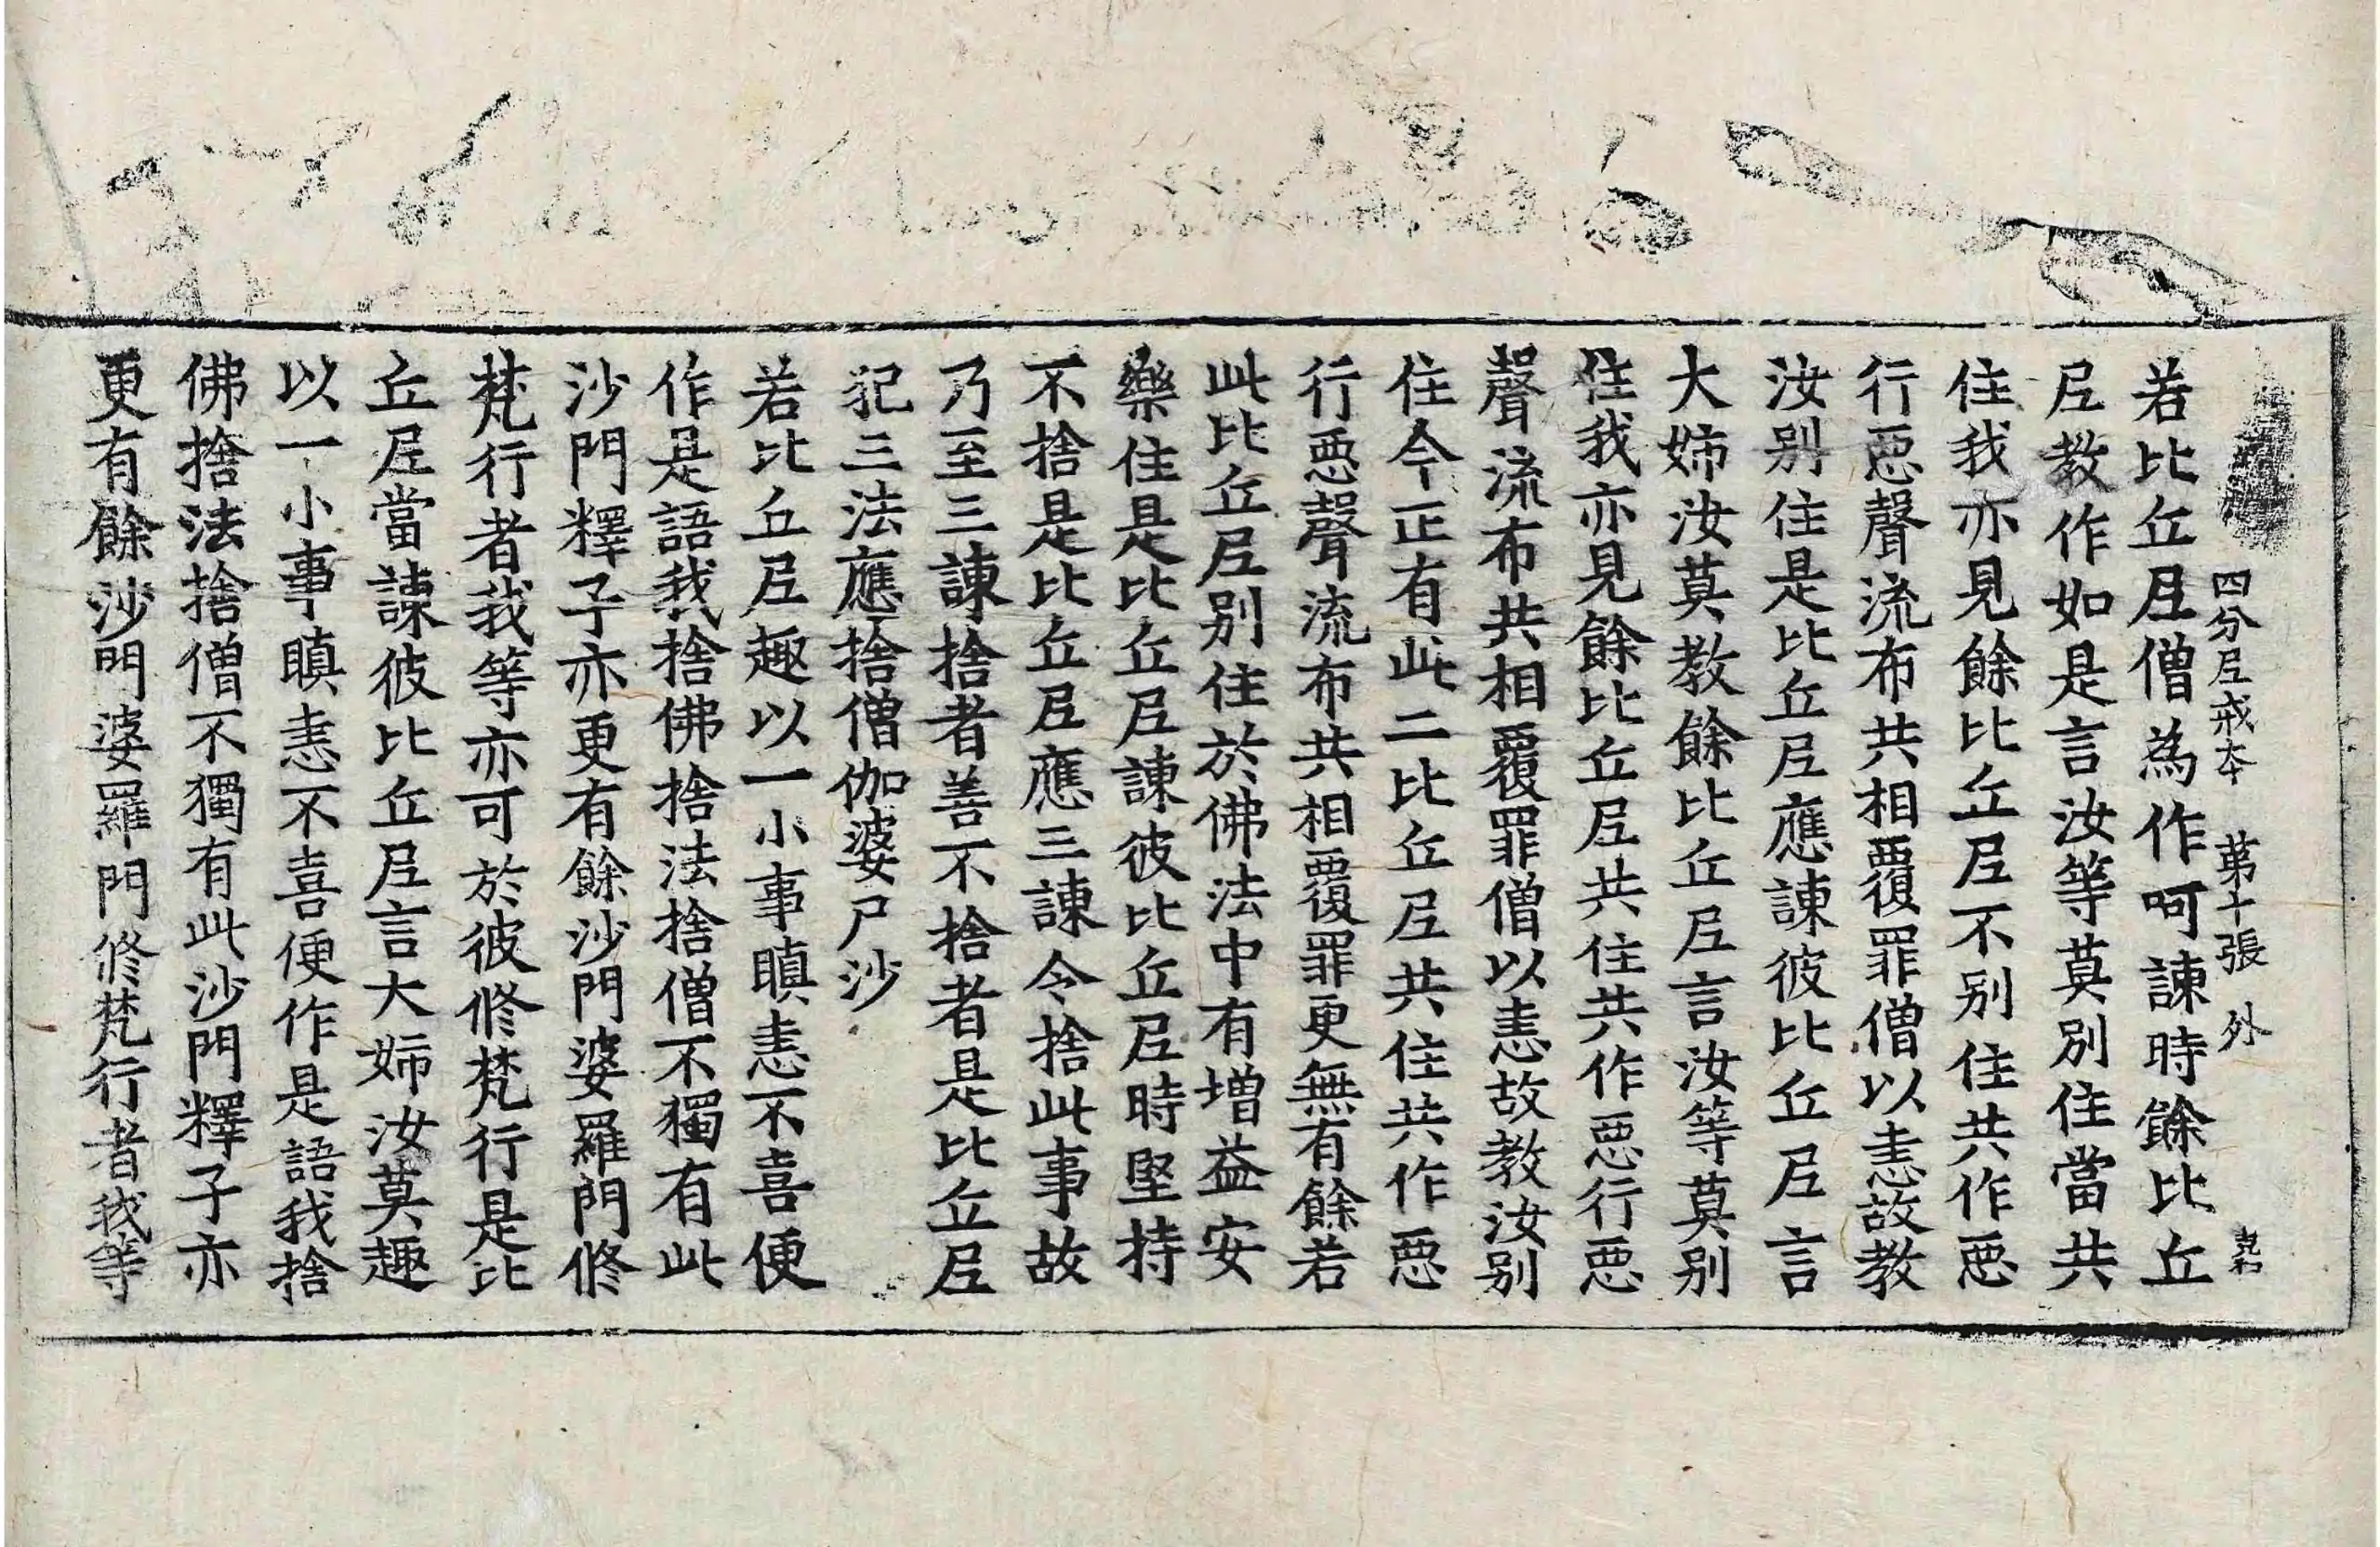 四分尼戒本 第十張 外
若比丘尼僧為作呵諫時餘比丘
尼教作如是言汝等莫別住當共
住我亦見餘比丘尼不別住共作惡
行惡聲流布共相覆罪僧以恚故教
汝別住是比丘尼應諫彼比丘尼言
大姊汝莫教餘比丘尼言汝等莫別
住我亦見餘比丘尼共住共作惡行惡
聲流布共相覆罪僧以恚故教汝別
住今正有此二比丘尼共住共作惡
行惡聲流布共相覆罪更無有餘若
此比丘尼別住於佛法中有增益安
樂住是比丘尼諫彼比丘尼時堅持
不捨是比丘尼應三諫令捨此事故
乃至三諫捨者善不捨者是比丘尼
犯三法應捨僧伽婆尸沙
若比丘尼趣以一小事瞋恚不喜便
作是語我捨佛捨法捨僧不獨有此
沙門釋子亦更有餘沙門婆羅門修
梵行者我等亦可於彼修梵行是比
丘尼當諫彼比丘尼言大姊汝莫趣
以一小事瞋恚不喜便作是語我捨
佛捨法捨僧不獨有此沙門釋子亦
更有餘沙門婆羅門修梵行者我等